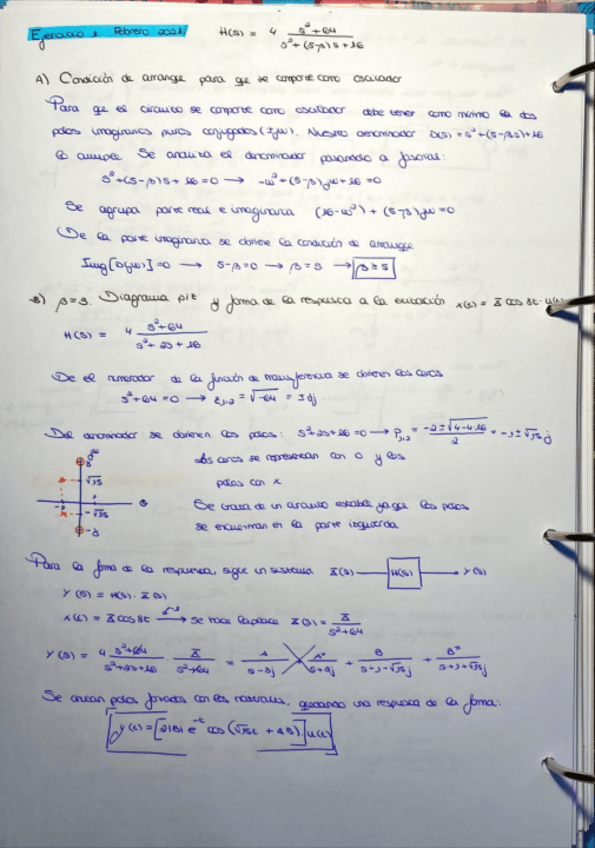 Ejercicio 1. Febrero 2021 H(s) = 4 (s²+64)/(s²+(5-β)s+16)
A) Condición de arranque para que se comporte como oscilador
Para que el circuito se comporte como oscilador debe tener como mínimo los dos
polos imaginarios puros conjugados (±jω). Nuestro denominador D(s) = s²+(5-βs)+16
lo cumple. Se analiza el denominador pasándolo a fasorial:
s²+(5-β)s+16=0 → -ω²+(5-β)jω+16=0
Se agrupa parte real e imaginaria (16-ω²)+(5-β)jω=0
De la parte imaginaria se obtiene la condición de arranque
Img[D(jω)]=0 → 5-β=0 → β=5 → β≥5
B) β=3. Diagrama p/z y forma de la respuesta a la excitación x(t) = X cos 8t·u(t)
H(s) = 4 (s²+64)/(s²+2s+16)
De el numerador de la función de transferencia se obtienen los ceros
s²+64=0 → z₁,₂=√-64 = ±8j
Del denominador se obtienen los polos: s²+2s+16=0 → P₁,₂ = (-2±√(4-4·16))/2 = -1±√15 j
jω
8
Los ceros se representan con O y los
√15
polos con x
-1 σ
Se trata de un circuito estable, ya que los polos
-√15
se encuentran en la parte izquierda
-8
Para la forma de la respuesta, sigue un sistema X(s) → H(s) → Y(s)
Y(s) = H(s)·X(s)
x(t) = X cos 8t → se hace Laplace X(s) = X/(s²+64)
Y(s) = 4 (s²+64)/(s²+2s+16) · X/(s²+64) = A/(s-8j) + A*/(s+8j) + B/(s+1-√15j) + B*/(s+1+√15j)
Se anulan polos forzados con los naturales, quedando una respuesta de la forma:
y(t)=[2|B| e^-t cos(√15t + ∡B)]u(t)